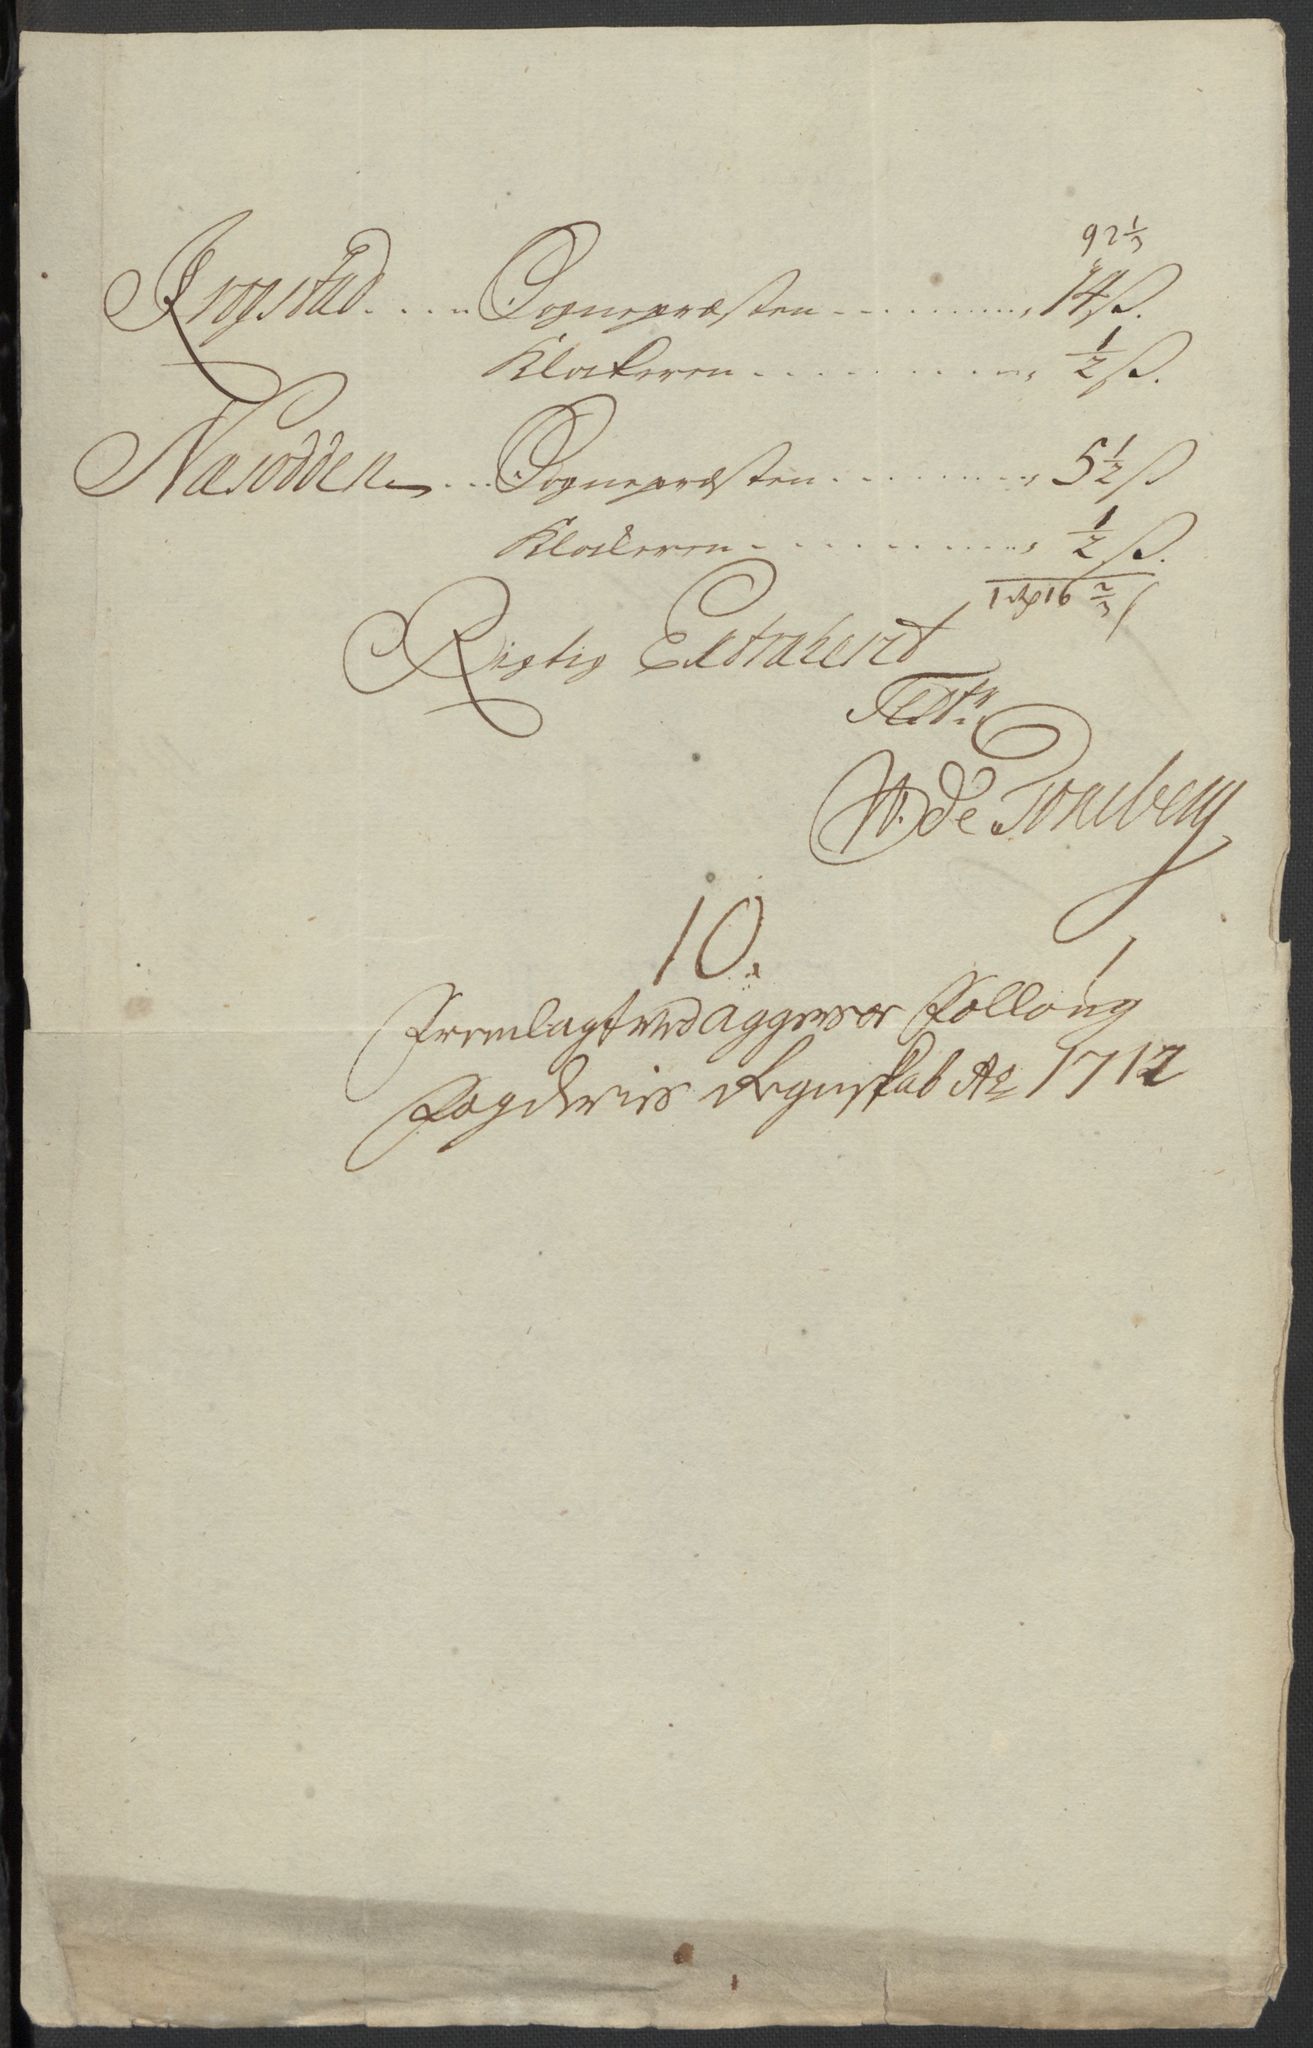 92 1/3
Krogstad .... Sognepræsten ........ 14 ß.
Klokeren ........ 1/2 ß.
Næsodden ... Sognepræsten ........ 5 1/2 ß
Klokeren ........ 1/2 ß.
1 rdr 16 2/3 ß
Rigtig Extraherit
Test.
W. de Tonsberg
10.
Fremlagt ved Aggers og Folloug
Fogderies Regnskab Ao 1712